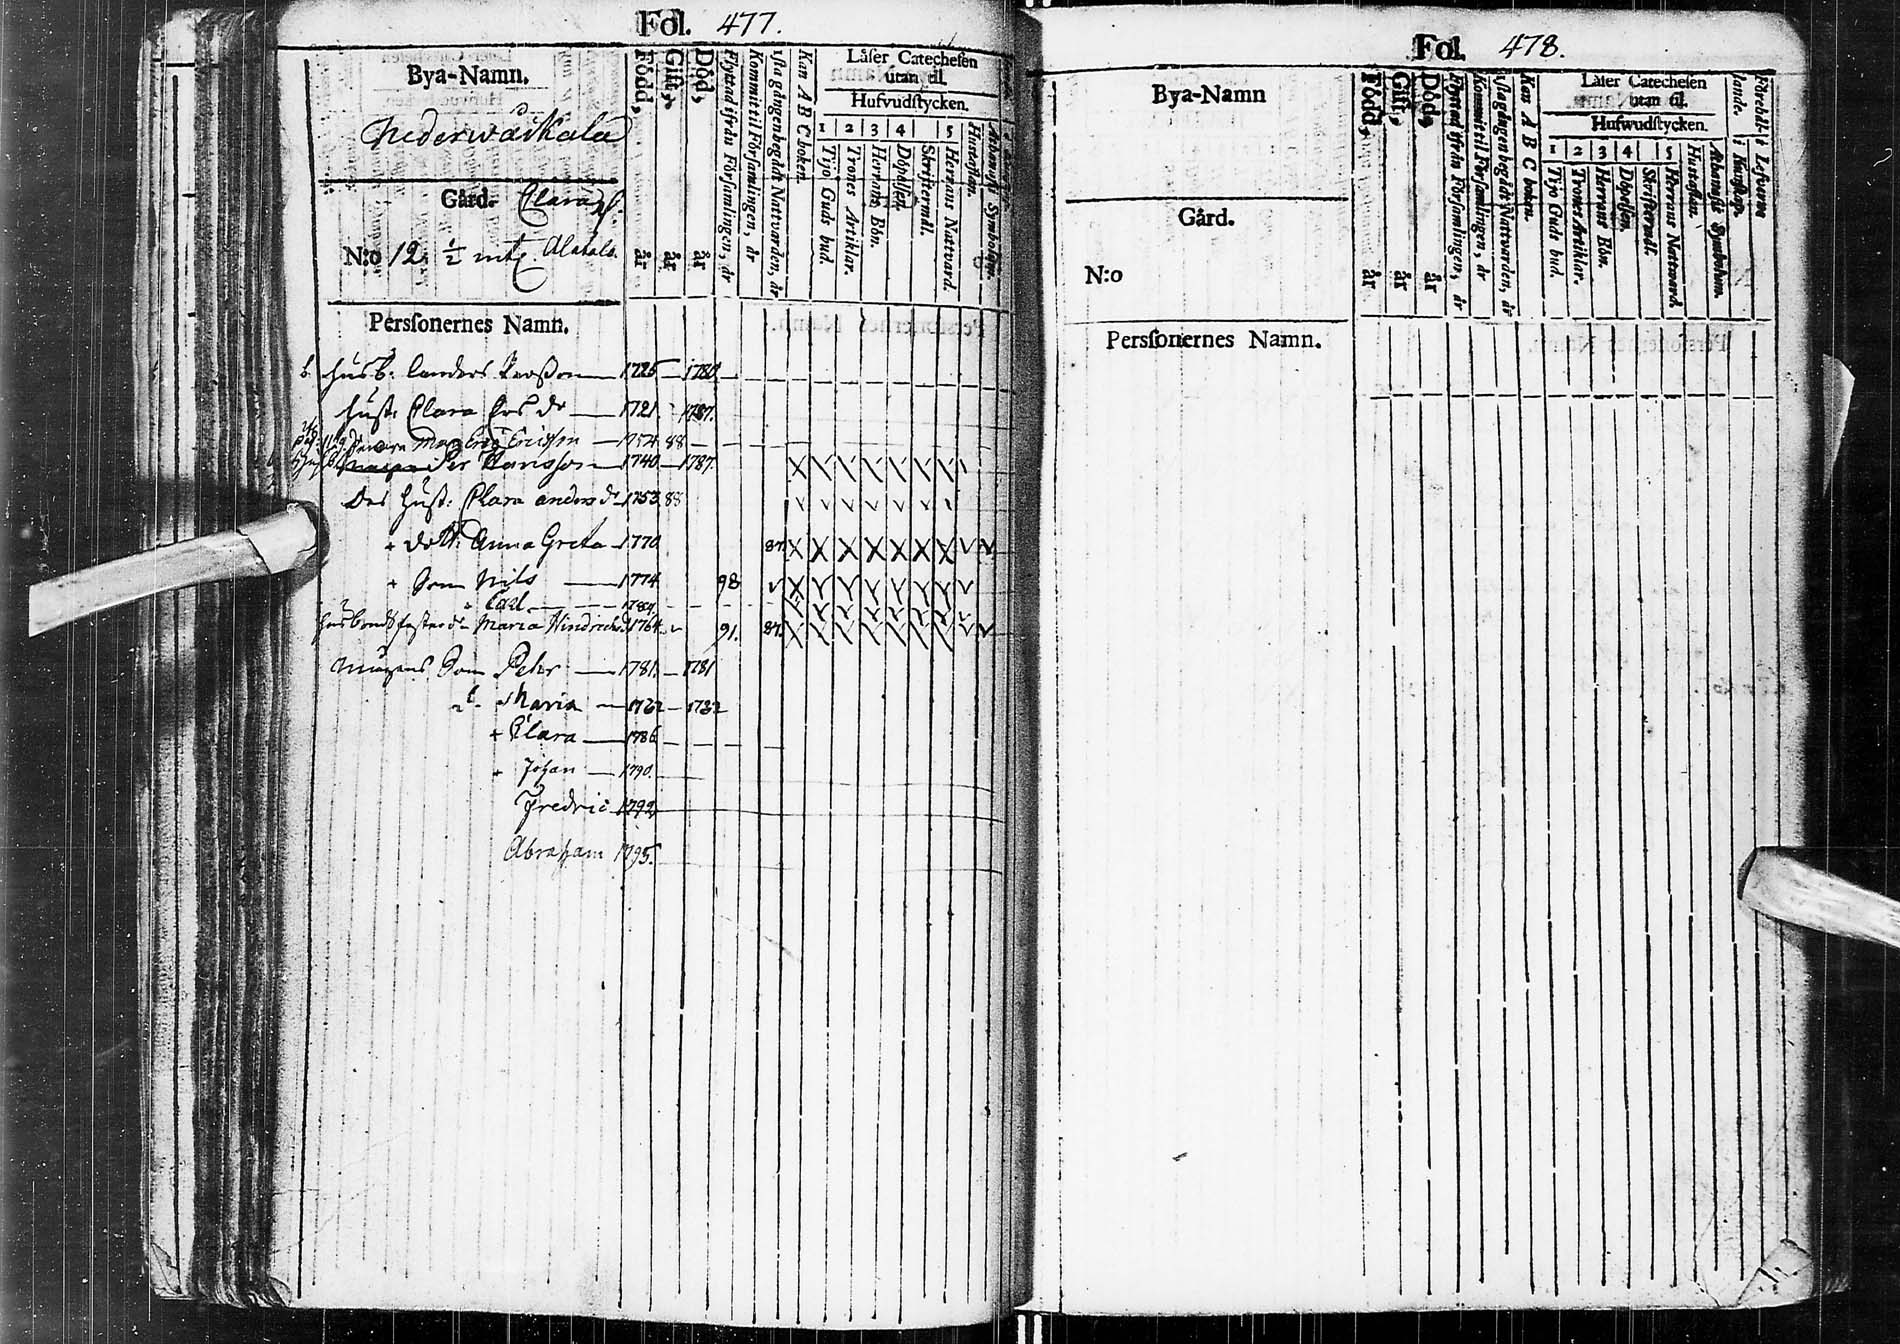 Fol. 477.
Bya-Namn.
Nederwäikala
Gård. Clara
N:o 12. ½ mtl
Född, år
Gift, år
Död, år
Flyttad ifrån Församlingen, år
Kommit til Församlingen, år
1sta gången begådt Nattvarden, år
Kan A B C boken.
Låser Catechesen
utan til.
Hufvudstycken.
1 2 3 4 5
Tijo Guds bud.
Trones Artiklar.
Herrans Bön.
Döpelsen.
Skriftermål.
Herrans Nattvard.
Hustaflan.
Athanasii Symbolum.
Persſonernes Namn.
Husb. Anders 1725 1780
Hust. Clara 1721 1787.
Mag Eriq Ericsson 1754 88
Per Hansson 1740 1787.
Des Hust: Clara Anders dr 1753 88
+ dott. Anna Greta 1770 87.
+ Son Nils 1774 98
Carl 1784
Maria Hindrichsdr 1764 91. 87.
Mågens Son Peter 1781. 1781
d. Maria 1782 1782
+ Clara 1786
+ Johan 1790.
Fredric 1792
Abraham 1795.
Fol. 478.
Bya-Namn
Gård.
N:o
Född, år
Gift, år
Död, år
Flyttad ifrån Församlingen, år
Kommit til Församlingen, år
1sta gången begådt Nattvarden, år
Kan A B C boken.
Låser Catechesen
utan til.
Hufwudstycken.
1 2 3 4 5
Tijo Guds bud.
Trones Artiklar.
Herrans Bön.
Döpelsen.
Skriftermål.
Herrans Nattvard.
Hustaflan.
Athanasii Symbolum.
Persſonernes Namn.